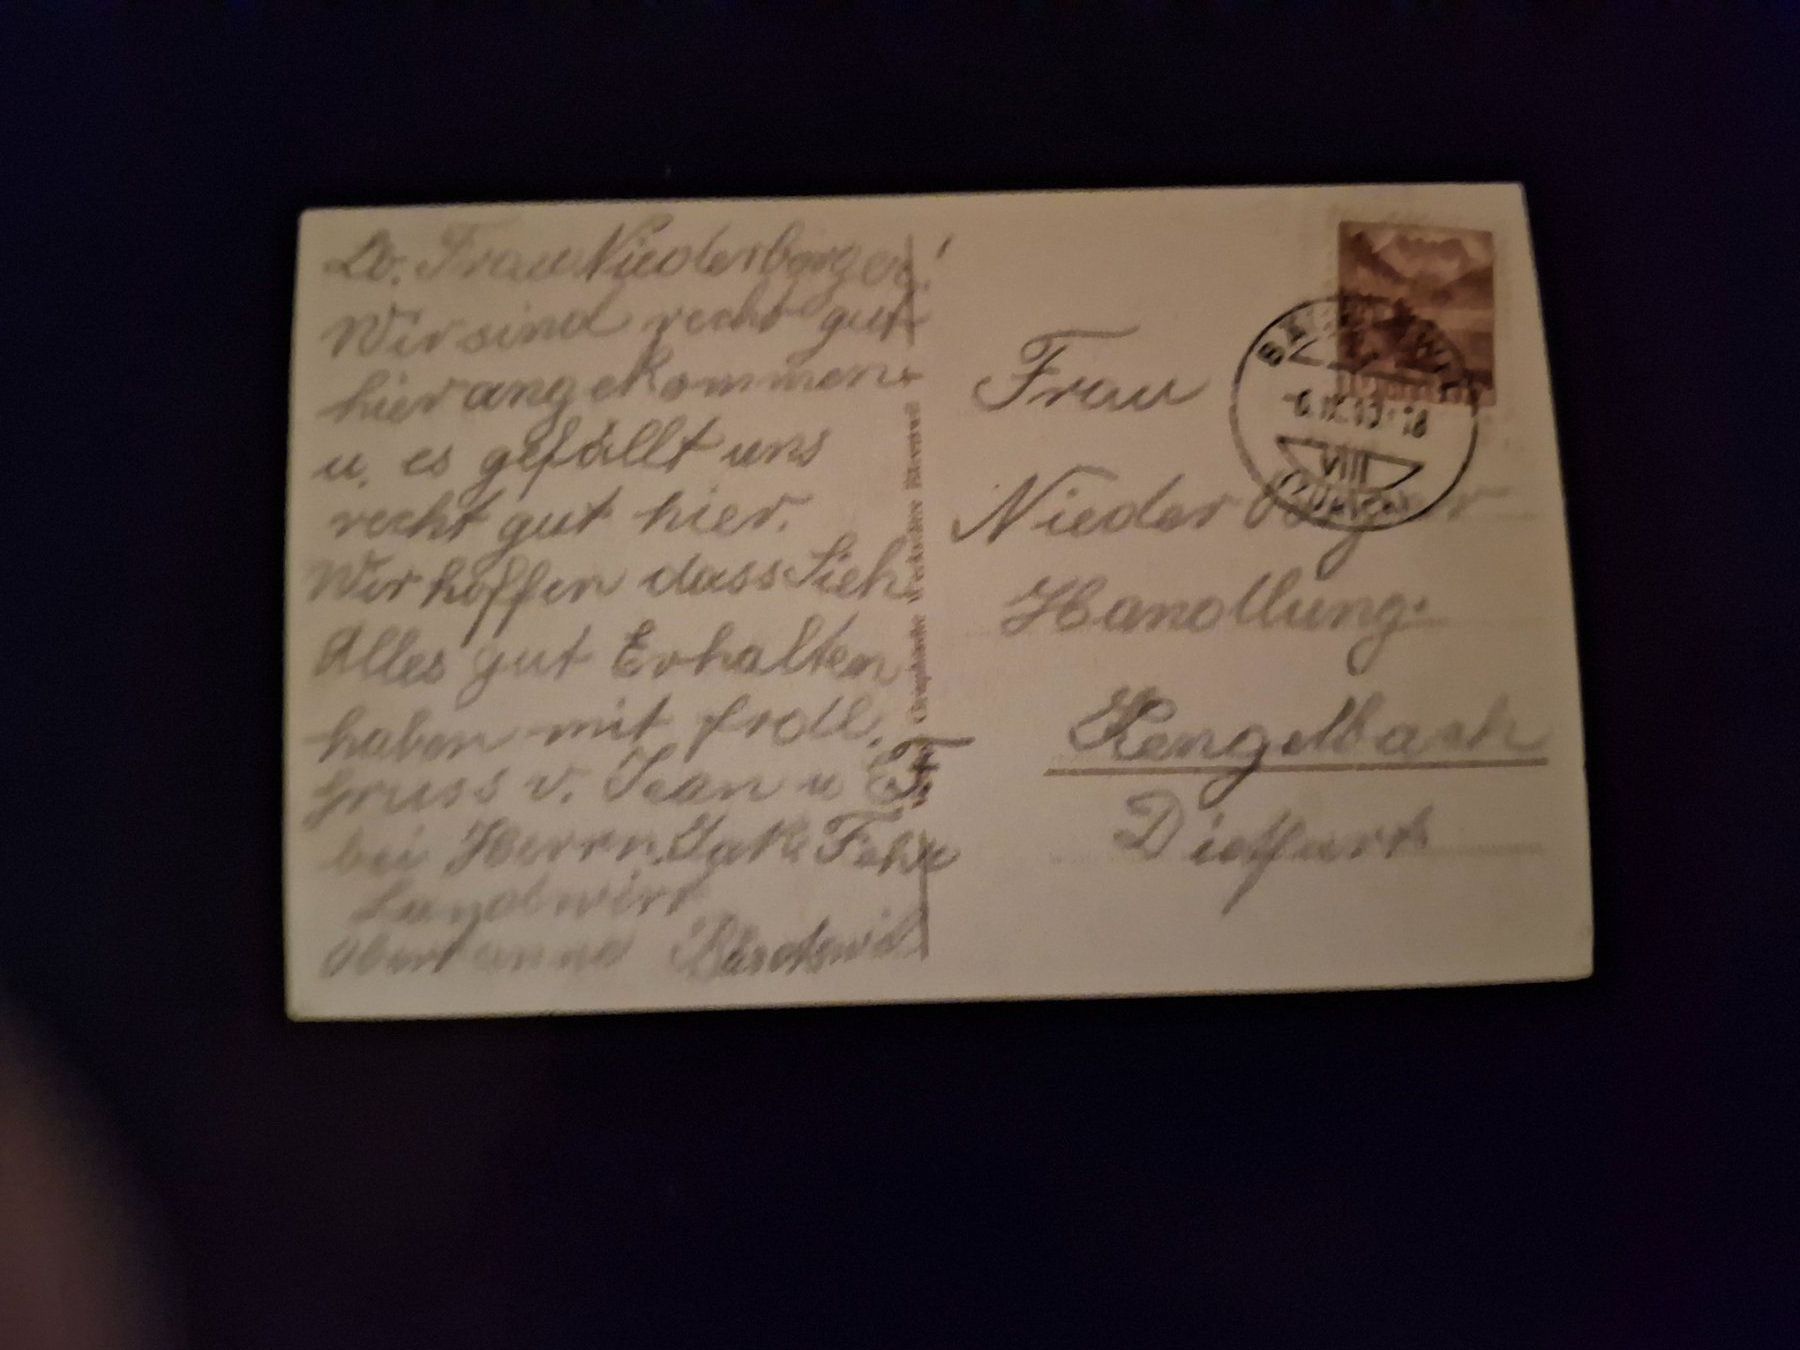 Lb. Frau Niederberger!
Wir sind recht gut
hier angekommen
u. es gefällt uns
recht gut hier.
Wir hoffen dass Sich
Alles gut Erhalten
haben mit frdl.
Gruss v. Jean u
bei Herrn. Jak. Fehr
Landwirt
Werkstätte Bäretswil
Frau
Niederberger
Handlung.
Hengelbach
Dietfurt
VIII
(ZÜRICH)